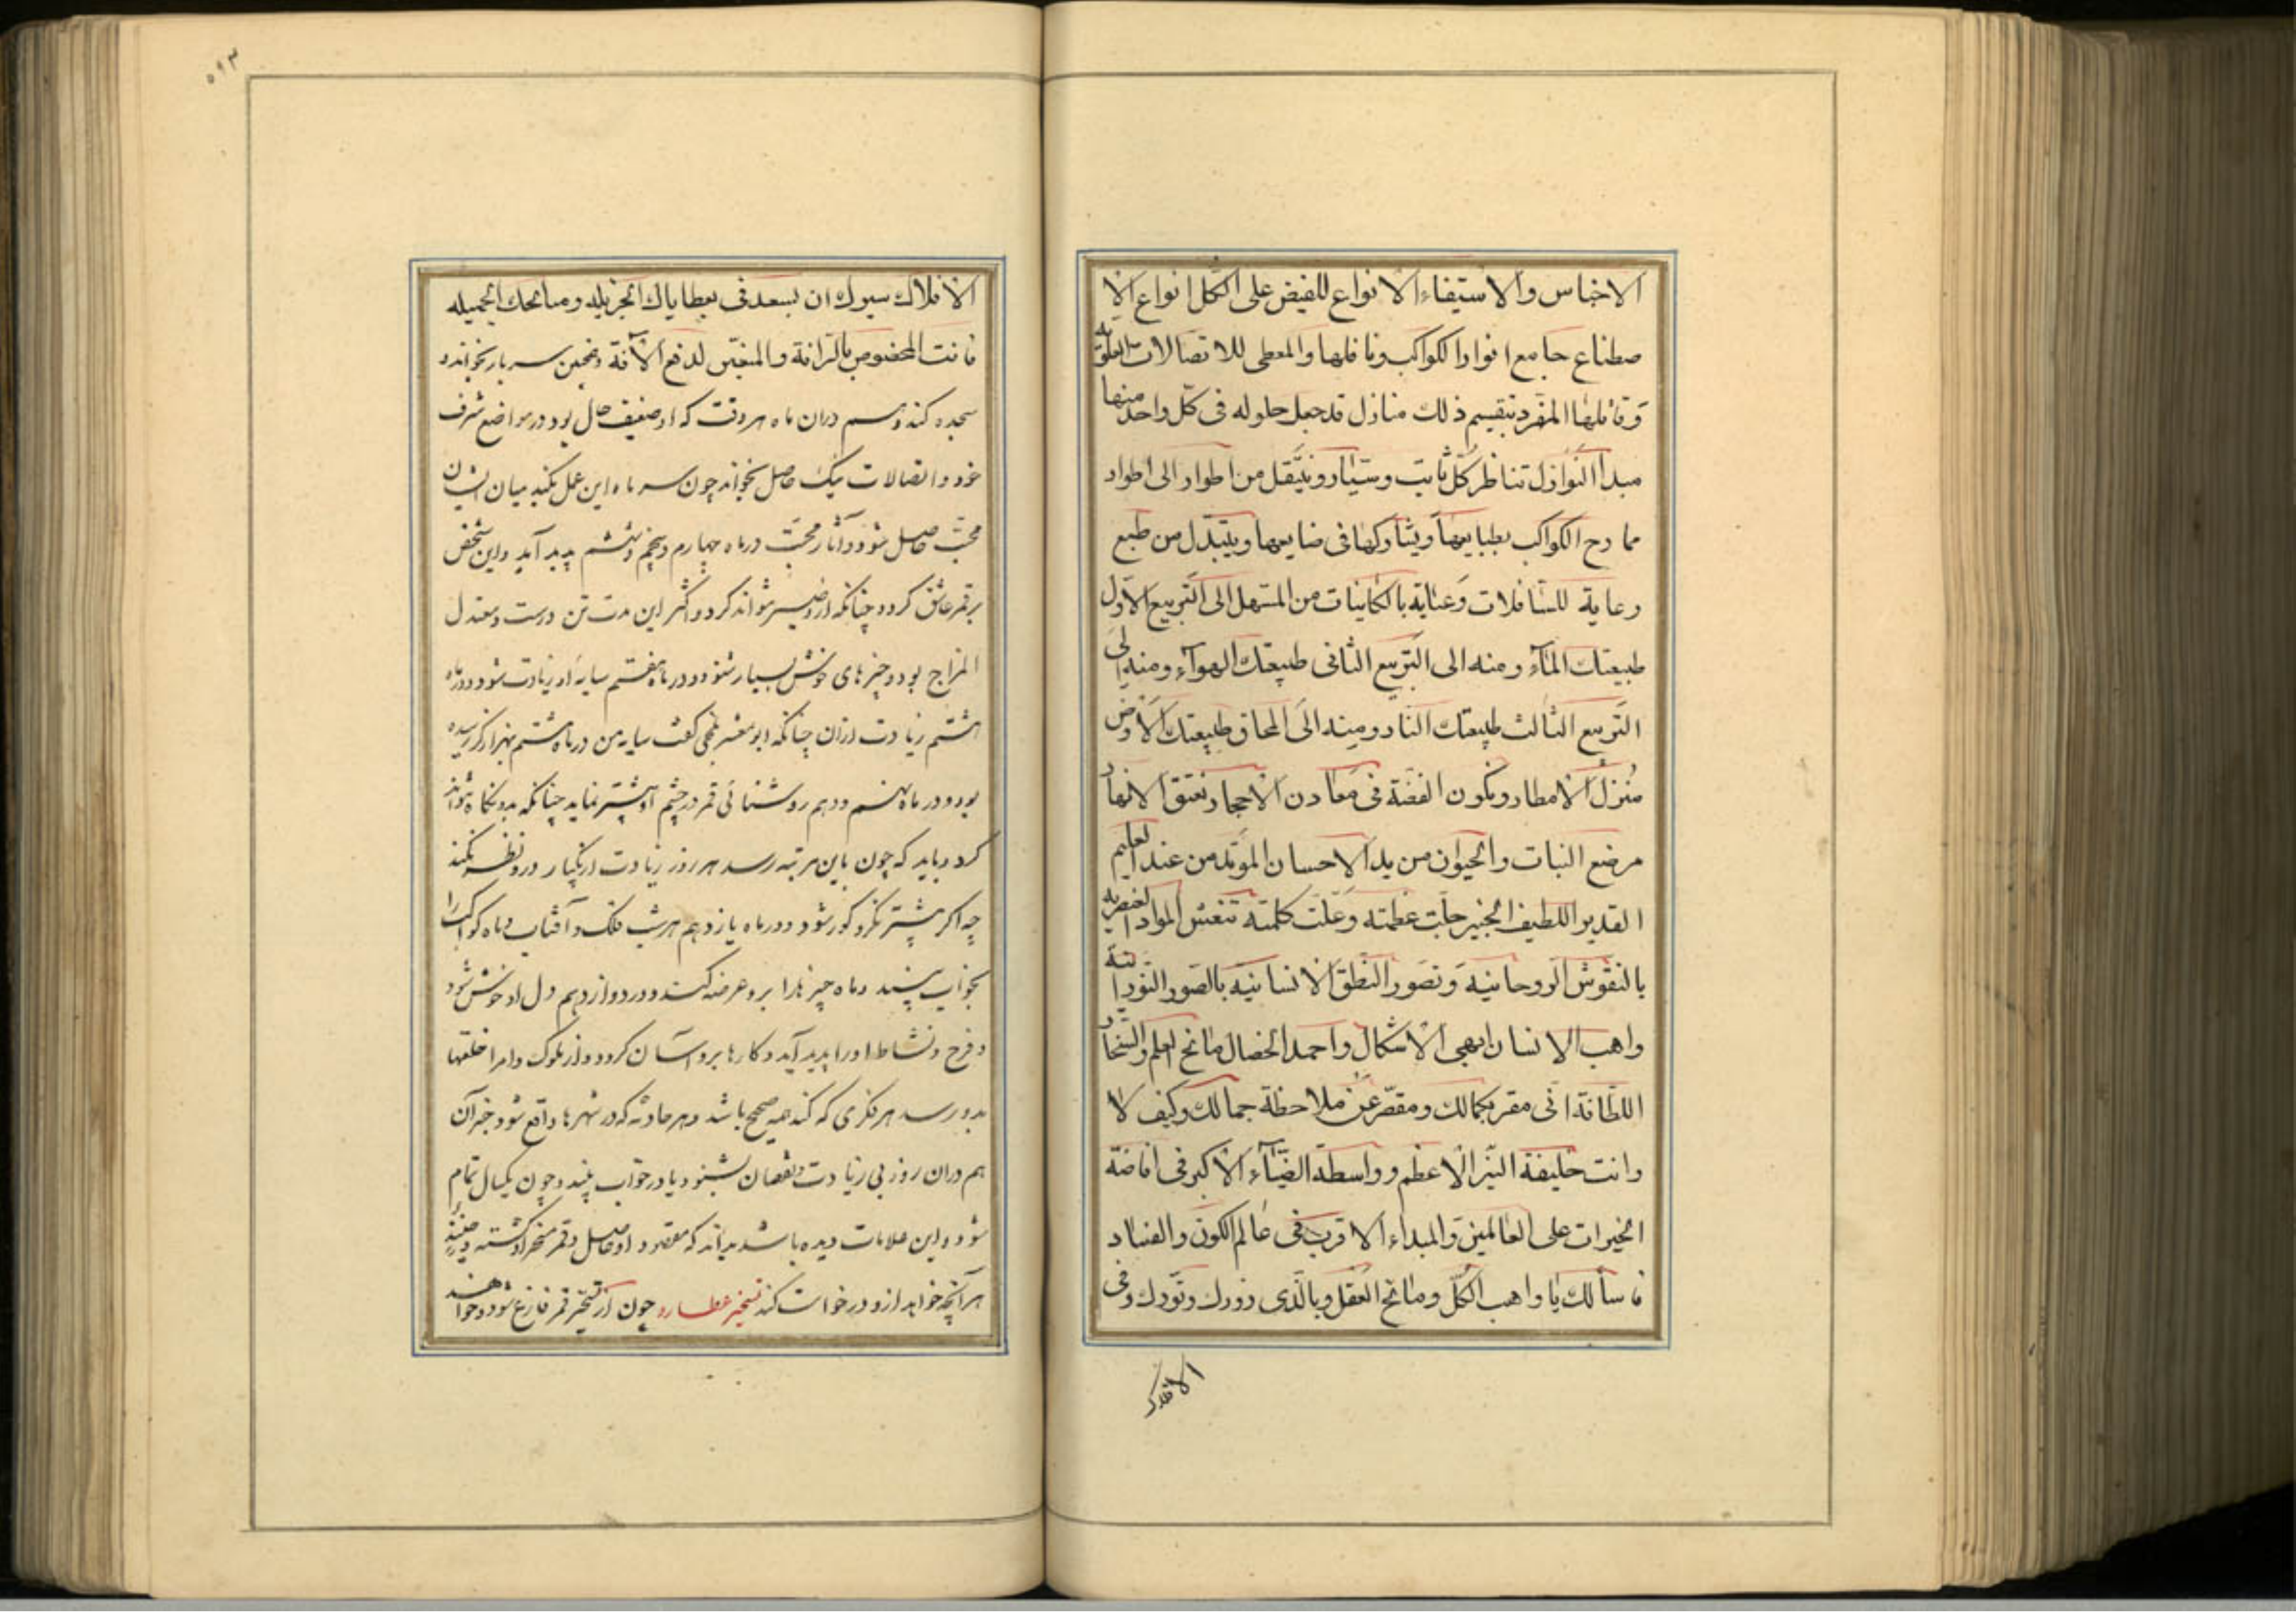 الاجناس والاستیفاء الانواع للفیض علی اکمل انواع الا
صطناع جامع انوار الکواکب وناقلها والمعطی للاتصالات العلویه
وقابلها المنفرد بتقسیم ذلك منازل قد جعل حلوله فی کل واحد منها
مبدأ النوازل تناظر کل ثابت وسیار ویتنقل من اطوار الی اطوار
ممازج الکواکب بطبایعها ویشارکها فی صنایعها ویتبدل من طبع
رعایة للسافلات وعنایة بالکاینات من المستهل الی التربیع الاول
طبیعتك الماء ومنه الی التربیع الثانی طبیعتك الهواء ومنه الی
التربیع الثالث طبیعتك النار ومنه الی المحاق طبیعتك الارض
منزل الامطار ومکون الفضة فی معادن الاحجار ومفتق الانهار
مرضع النبات والحیوان من ید الاحسان المؤید من عند العلیم
القدیر اللطیف الخبیر جلت عظمته وعلت کلمته تنقش المواد العنصریه
بالنقوش الروحانیة وتصور النطق الانسانیه بالصور النورانیة
واهب الانسان ابهی الاشکال واحمد الخصال مانح العلم والسخا
اللطافة انی مقر بکمالك ومقصر عن ملاحظة جمالك وکیف لا
وانت خلیفة النیر الاعظم وواسطة الضیاء الاکبر فی افاضة
الخیرات علی العالمین والمبداء الاقرب فی عالم الکون والفساد
فاسألك یا واهب الکل ومانح العقل وبالذی دورك ونورك وفی
۵۹۳
الافلاك سیرك ان تسعدنی بعطایاك الجزیله ومنائحك الجمیله
فانت المخصوص بالرافة والمتعین لدفع الآفة وهمچنین سه بار بخواند و
سجده کند وهم دران ماه هر وقت که او ضعیف حال بود در مواضع شرف
خود واتصالات نیك حاصل بخواند چون سه ماه این عمل بکند میان ایشان
محبت حاصل شود وآثار محبت در ماه چهارم وپنجم وششم پدید آید واین شخص
بر قمر عاشق گردد چنانکه ازو صبر نتواند کرد واکثر این مدت تن درست ومعتدل
المزاج بود وخبرهای خوش بسیار شنود ودر ماه هفتم سایه او زیادت شود ودر ماه
هشتم زیادت ازان چنانکه ابو معشر بلخی گفت سایه من در ماه هشتم بهزار گز رسیده
بود ودر ماه نهم ودهم روشنائی قمر در چشم او بیشتر نماید چنانکه بدو نگاه نتواند
کرد وباید که چون باین مرتبه رسد هر روز زیادت از یکبار درو نظر نکند
چه اگر بیشتر نگرد کور شود ودر ماه یازدهم هر شب فلك وآفتاب وماه وکواکب را
بخواب بیند وماه چیزها را برو عرضه کند ودر دوازدهم دل او خوش شود
وفرح ونشاط اورا پدید آید وکارها برو آسان گردد واز ملوك وامرا خلعتها
بدو رسد هر فکری که کند همه صحیح باشد وهر حادثه که در شهرها واقع شود خبر آن
هم دران روز بی زیادت ونقصان بشنود یا در خواب بیند وچون یکسال تمام
شود واین علامات دیده باشد بداند که مقصود او حاصل وقمر مسخر او گشته
هر آنچه خواهد ازو درخواست کند تسخیر عطارد چون از تسخیر قمر فارغ شود وخواهند